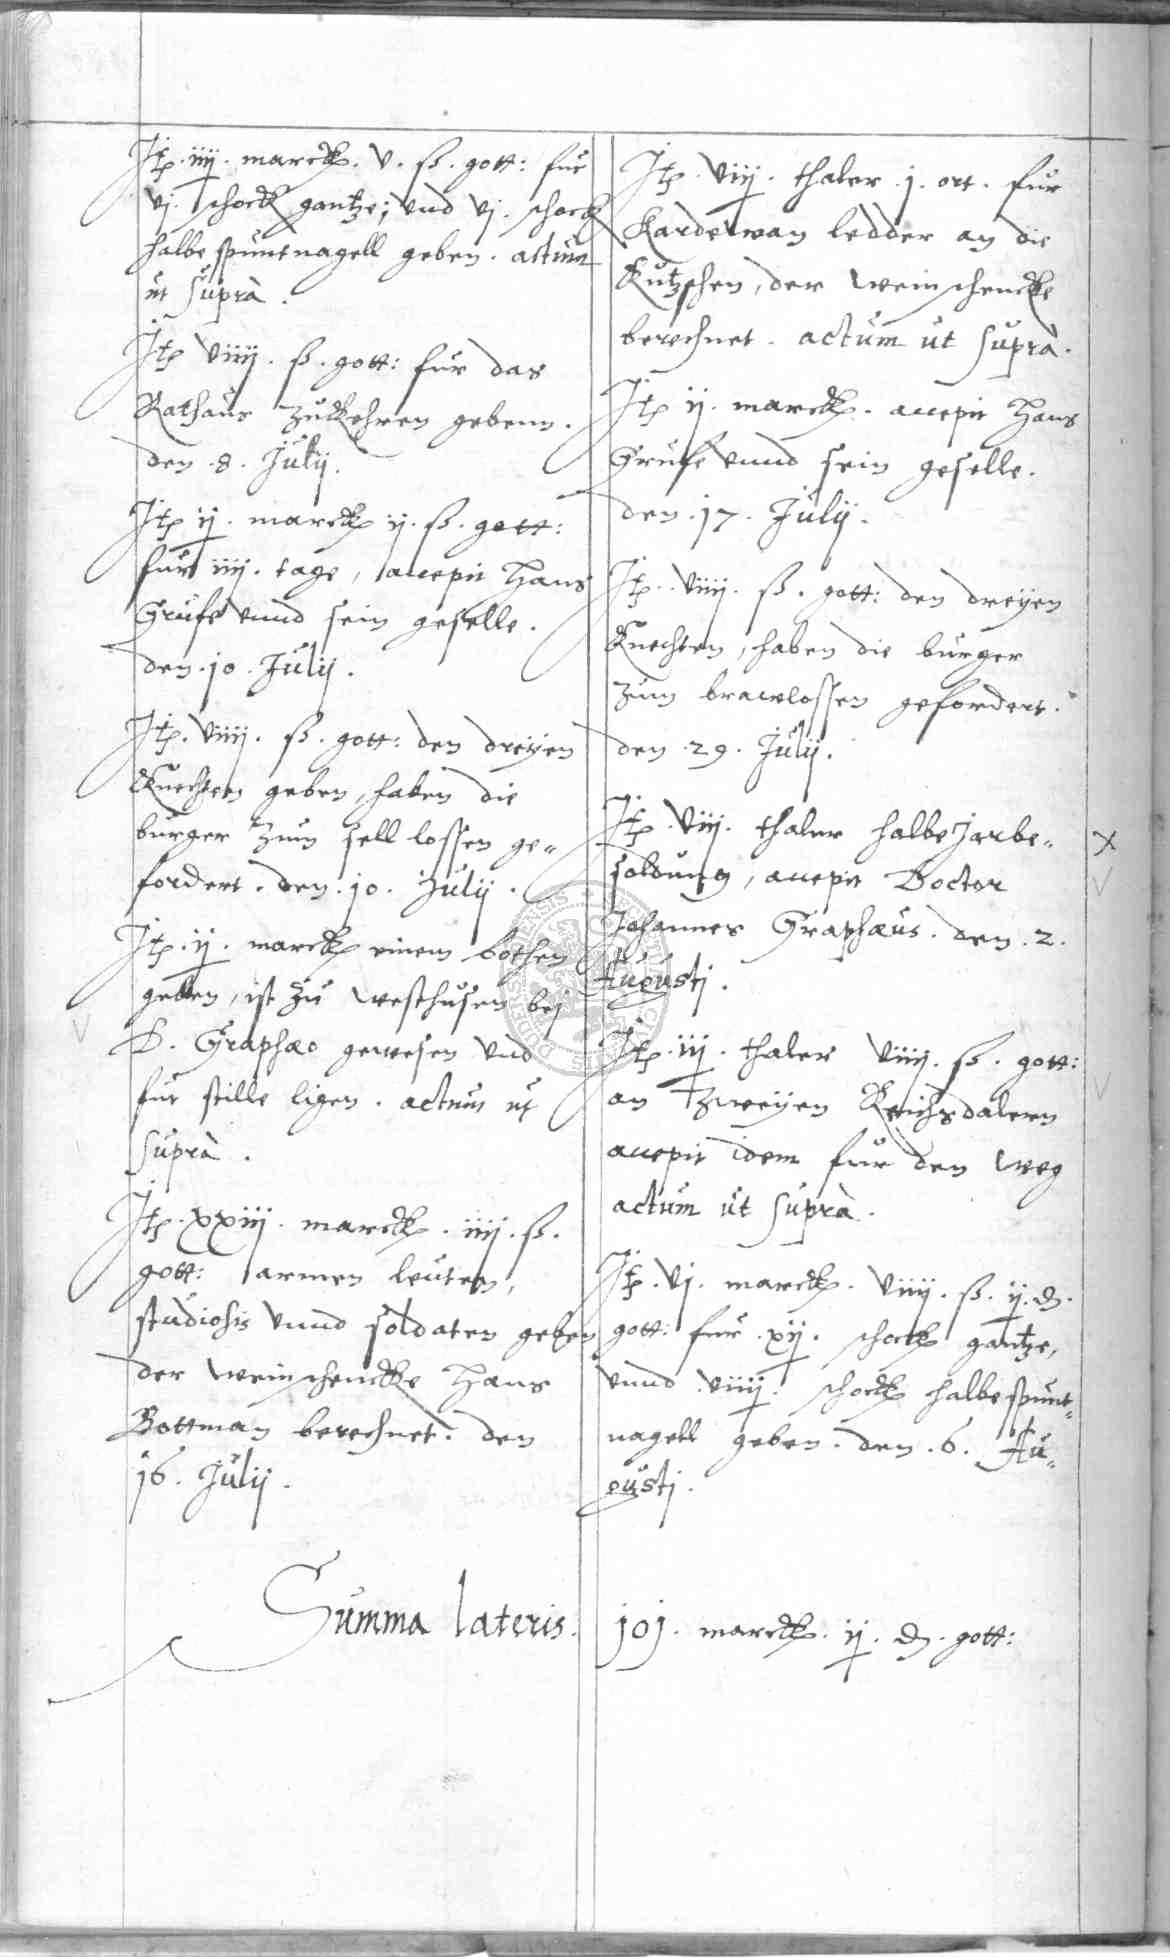 Itp. iiij. marck. v. ß. gott: fur
vj. schock gantze, vnd vj. schock
halbe spuntnagell geben. actum
ut suprà.
Itp viiij. ß. gott: für das
Rathaus zukkehren gebenn.
den .8. Julij.
Itp ij. marck ij. ß. gott:
für iiij. tage, accepit Hans
Grufe vnnd sein geselle.
den .10. Julij.
Itp. viiij. ß. gott: den dreyen
Knechten geben, haben die
burger zum sell lossen ge„
fordert. den .10. Julij.
Itp. ij. marck einem bothen
geben, ist zu Westhusen bej
D. Graphæo gewesen vnd
fur stille ligen. actum ut
suprà.
Itp. xxiij. marck. iiij. ß.
gott: armen leuten,
studiosis vnnd soldaten geben
der weinschencke Hans
Bottman berechnet. den
16. Julij.
Itp. viij. thaler .j. ort. fur
Kardewan ledder an die
Kutzschen, der weinschencke
berechnet. actum ut suprà.
Itp ij. marck. accepit Hans
Grufe vnnd sein geselle.
den .17. Julij.
Itp. viiij. ß. gott: den dreyen
Knechten, haben die burger
zum brawlossen gefordert.
den .29. Julij.
Itp. viij. thaler halbe Jarbe„
soldung, accepit Doctor
Johannes Graphæus. den .2.
Augustj.
Itp. iij. thaler viiij. ß. gott:
an zweyen Reichsdalern
accepit idem fur den weg
actum ut suprà.
Itp. vj. marck. viiij. ß. ij. d.
gott: fur .xij. schock gantze,
vnnd viiij. schock halbe spunt„
nagell geben. den .6. Au„
gustj.
Summa lateris. 101. marck. ij. d. gott: